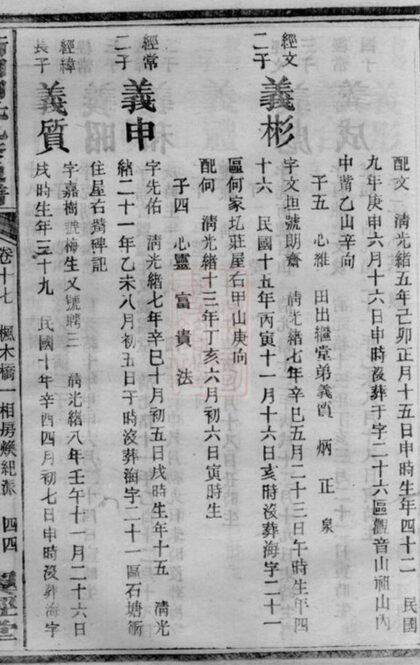 配文 清光緒五年己卯正月十五日申時生年四十二 民國
九年庚申六月十六日申時沒葬于字二十六區觀音山祖山內
中背乙山辛向
子五 心維 田出繼堂弟義質 炳 正 泉
經文
二子
義彬
字文担號朗齋 清光緒七年辛巳五月二十三日午時生年四
十六 民國十五年丙寅十一月十六日亥時沒葬海字二十一
區何家坵莊屋右甲山庚向
配何 清光緒十三年丁亥六月初六日寅時生
子四 心靈 富 貴 法
經常
二子
義申
字先佑 清光緒七年辛巳十月初五日戌時生年十五 清光
緒二十一年乙未八月初五日子時沒葬海字二十一區石塘衝
住屋右對碑記
經緯
長子
義質
字嘉樹號梅生又號騁三 清光緒八年壬午十一月二十六日
戌時生年三十九 民國十年辛酉四月初七日申時沒葬海字
卷十七 楓木橋一相房煥紀派 四四